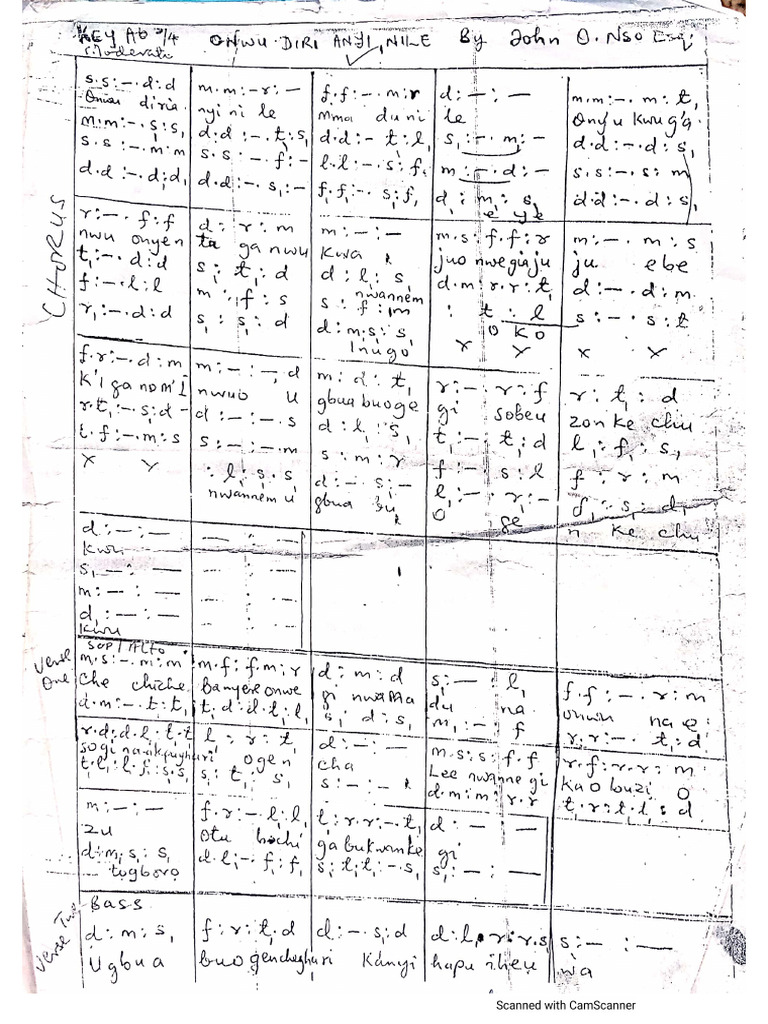 KEY Ab 3/4 ONWU DIRI ANYI NILE By John O. Nso Esq.
Moderato
CHORUS
s.s:-.d:d m.m:-r:- f.f:-.m:r d:-:- m.m:-.m:t,
Onwu diria nyi ni le mma du ni le Onyu kwuga
m.m:-.s:s, d.d:-.t:s, d.d:-t:l, s,:-.m:- d.d:-.d:s,
s.s:-.m:m s.s:-.f:- l.l:-.s:f, m:-.d:- s.s:-.s:m
d.d:-.d:d, d.d:-.s,:- f,.f,:-.s:f, d:m:s, d.d:-.d:s,
e ye
r:-.f:f d:r:m m:-:- m.s:f.f:r m:-.m:s
nwu onyen ta ga nwu kwa juo nwegiaju ju ebe
t,:-.d:d s:t,:d d:l,:s, d.m:r.r:t, d:-.d:m
nwannem
f:-.l:l m:f:s s:f:m :t:l s:-.s:t
o ko
r,:-.d:d s,:s,:d d:m.s:s, x x x x
Inugo
f.r:-.d:m m:-:-,d m:d:t, r:-.r:f r:t,:d
k'i ga nom'I nwuo u gbua buo ge gi sobeu zon ke chu
r.t,:-.s:d- d:-:-.s d:l,:s, t,:-.t,:d l,:f,:s,
t.f:-.m:s s:-:-.m s:m:r f:-s:l f:r:m
x x :l,:s.s, d:-.s,:- l,:-.r,:- f,:s,:d,
nwannem u gbua bu o ge n ke chu
d:-:- -:-
kwu
s,-:- -:-
m:-:- -:-
d,:-:- -:-
kwu
Verse One
SOP/ALTO
m.s:-.m:m m.f:f.m:r d:m:d s,:-:l, f.f:-.r:m
che chiche banyere onwe gi nwanna du na onwu na e
d.m:-.t:t, t,.d:d.l,:l, s,:d:s, m,:-:f r.r:-.t,:d
r.d:d.l,:t,.t l:r:t, d:-:- m.s:s:f.f r.f:r.r:m
sogi na-akpughari ogen cha Lee nwanne gi ka o buzi o
t.l,:l,.f,:s.s, s:t,:s, s:-:- d.m:m:r.r t,.r:t.l,:d
m:-:- f.r:-.l:l, t,:r.r:-.t, d:-:-
zu otu bochi ga bukwanke gi
d:m.s,:s, d.l,:-.f:f, s,:t,.t,:-.s, s,:-:-
togboro
Verse Two
BASS
d:m:s, f:r:t,.d d:-.s,:d d:l,.r:r.s s:-:-
Ugbua buo gencheghari Kanyi hapu iheu wa
Scanned with CamScanner